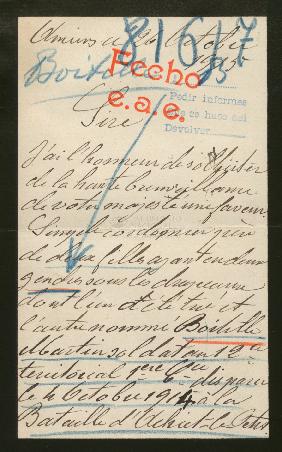 Amiens le 24 Octobre
1915
81617
Boitelle
B5
Fecho
e.a.e.
Pedir informes
que se hace así
Devolver
Sire
J'ai l'honneur de solliciter
de la haute bienveillance
de votre majesté une faveur
Simple cordonnier père
de deux filles ayant deux
gendres sous les drapeaux
dont l'un a été tué et
l'autre nommé Boitelle
Martin soldat au 12e
territorial 1ere Cie disparu
le 4 Octobre 1914 à la
Bataille d'Achiet-le-Petit